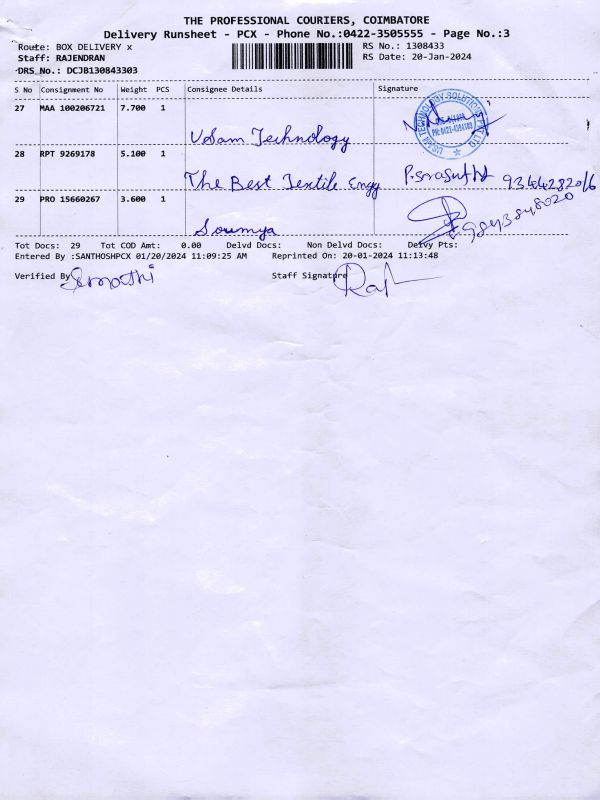 THE PROFESSIONAL COURIERS, COIMBATORE
Delivery Runsheet - PCX - Phone No.:0422-3505555 - Page No.:3
Route: BOX DELIVERY x
RS No.: 1308433
Staff: RAJENDRAN
RS Date: 20-Jan-2024
DRS No.: DCJB130843303
S No Consignment No Weight PCS Consignee Details Signature
27 MAA 100206721 7.700 1
USam Technology
28 RPT 9269178 5.100 1
The Best Textile Engg P.Srasuthi 9344282016
29 PRO 15660267 3.600 1
Soumya 9843848020
Tot Docs: 29 Tot COD Amt: 0.00 Delvd Docs: Non Delvd Docs: Delvy Pts:
Entered By :SANTHOSHPCX 01/20/2024 11:09:25 AM Reprinted On: 20-01-2024 11:13:48
Verified By Staff Signature